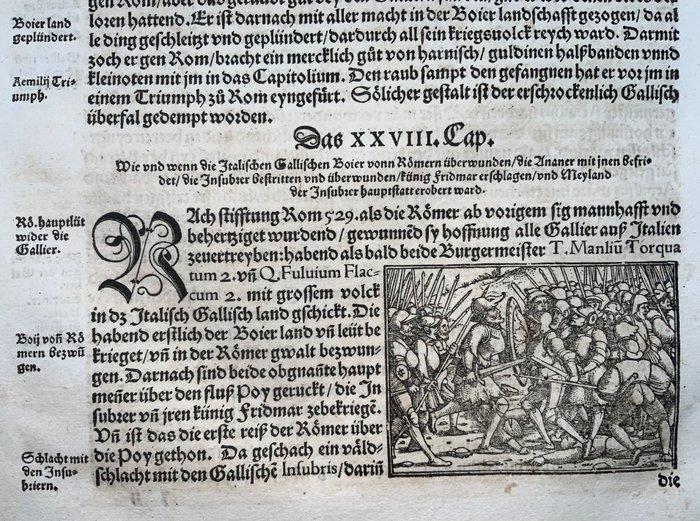 Boier land
geplündert.
Aemilij Tri-
umph.
loren hattend. Er ist darnach mit aller macht in der Boier landschafft gezogen/da al
le ding geschleitzt vnd geplündert/dardurch all sein kriegsuolck reych ward. Darmit
zoch er gen Rom/bracht ein mercklich gůt von harnisch/guldinen halßbanden vnnd
kleinoten mit jm in das Capitolium. Den raub sampt den gefangnen hat er vor jm in
einem Triumph zů Rom eyngefürt. Sölicher gestalt ist der erschrockenlich Gallisch
überfal gedempt worden.
Das XXVIII. Cap.
Wie vnd wenn die Italischen Gallischen Boier vonn Römern überwunden/die Ananer mit jnen befri-
det/die Insubrer bestritten vnd überwunden/künig Fridmar erschlagen/vnd Meyland
der Insubrer hauptstatt erobert ward.
Rö. hauptlüt
wider die
Gallier.
NAch stifftung Rom 529. als die Römer ab vorigem sig mannhafft vnd
behertziget wurdend/gewunnēd sy hoffnung alle Gallier auß Italien
zeuertreyben: habend als bald beide Burgermeister T. Manliū Torqua
tum 2. vñ Q. Fuluium Flac-
cum 2. mit grossem volck
in dz Italisch Gallisch land gschickt. Die
habend erstlich der Boier land vñ leüt be
krieget/vñ in der Römer gwalt bezwun-
gen. Darnach sind beide obgnañte haupt
meñer über den fluß Poy geruckt/die In
subrer vñ jren künig Fridmar zebekriegē.
Vñ ist das die erste reiß der Römer über
die Poy gethon. Da geschach ein väld-
schlacht mit den Gallischē Insubris/dariñ
Boij voñ Rö
mern bezwū
gen.
Schlacht mit
den Insu-
briern.
die